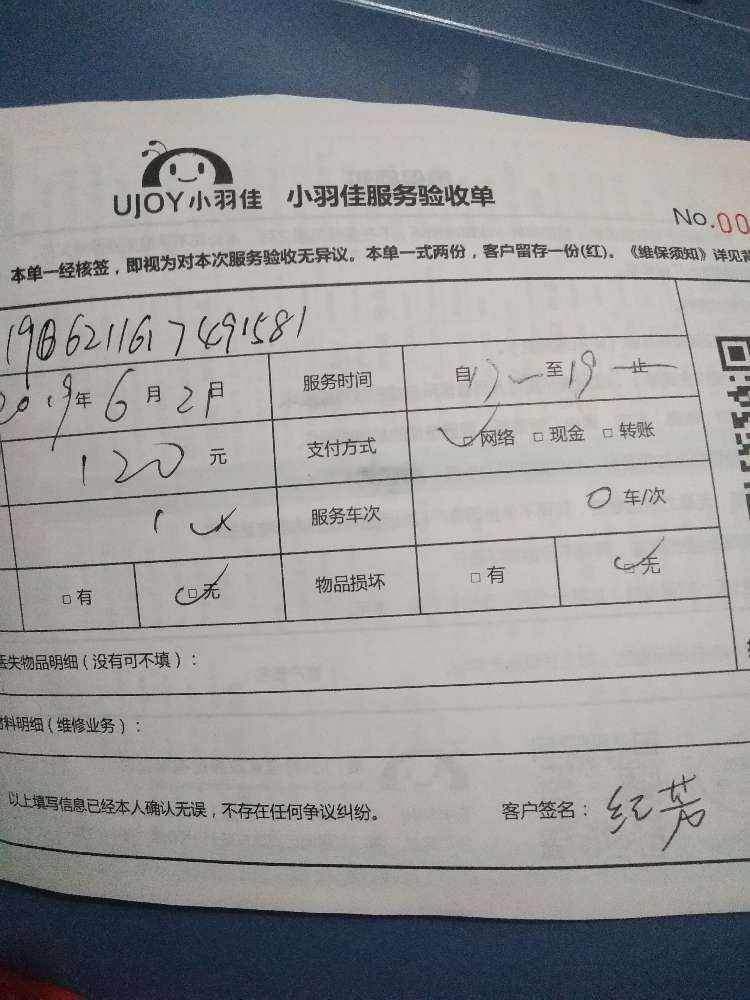 UJOY小羽佳 小羽佳服务验收单
No.00
本单一经核签，即视为对本次服务验收无异议。本单一式两份，客户留存一份(红)。《维保须知》详见背
2019年6月21日 服务时间 自17 至19 止
120元 支付方式 □网络 □现金 □转账
1 服务车次 0车/次
□有 □无 物品损坏 □有 □无
丢失物品明细（没有可不填）：
材料明细（维修业务）：
以上填写信息已经本人确认无误，不存在任何争议纠纷。 客户签名：红芳